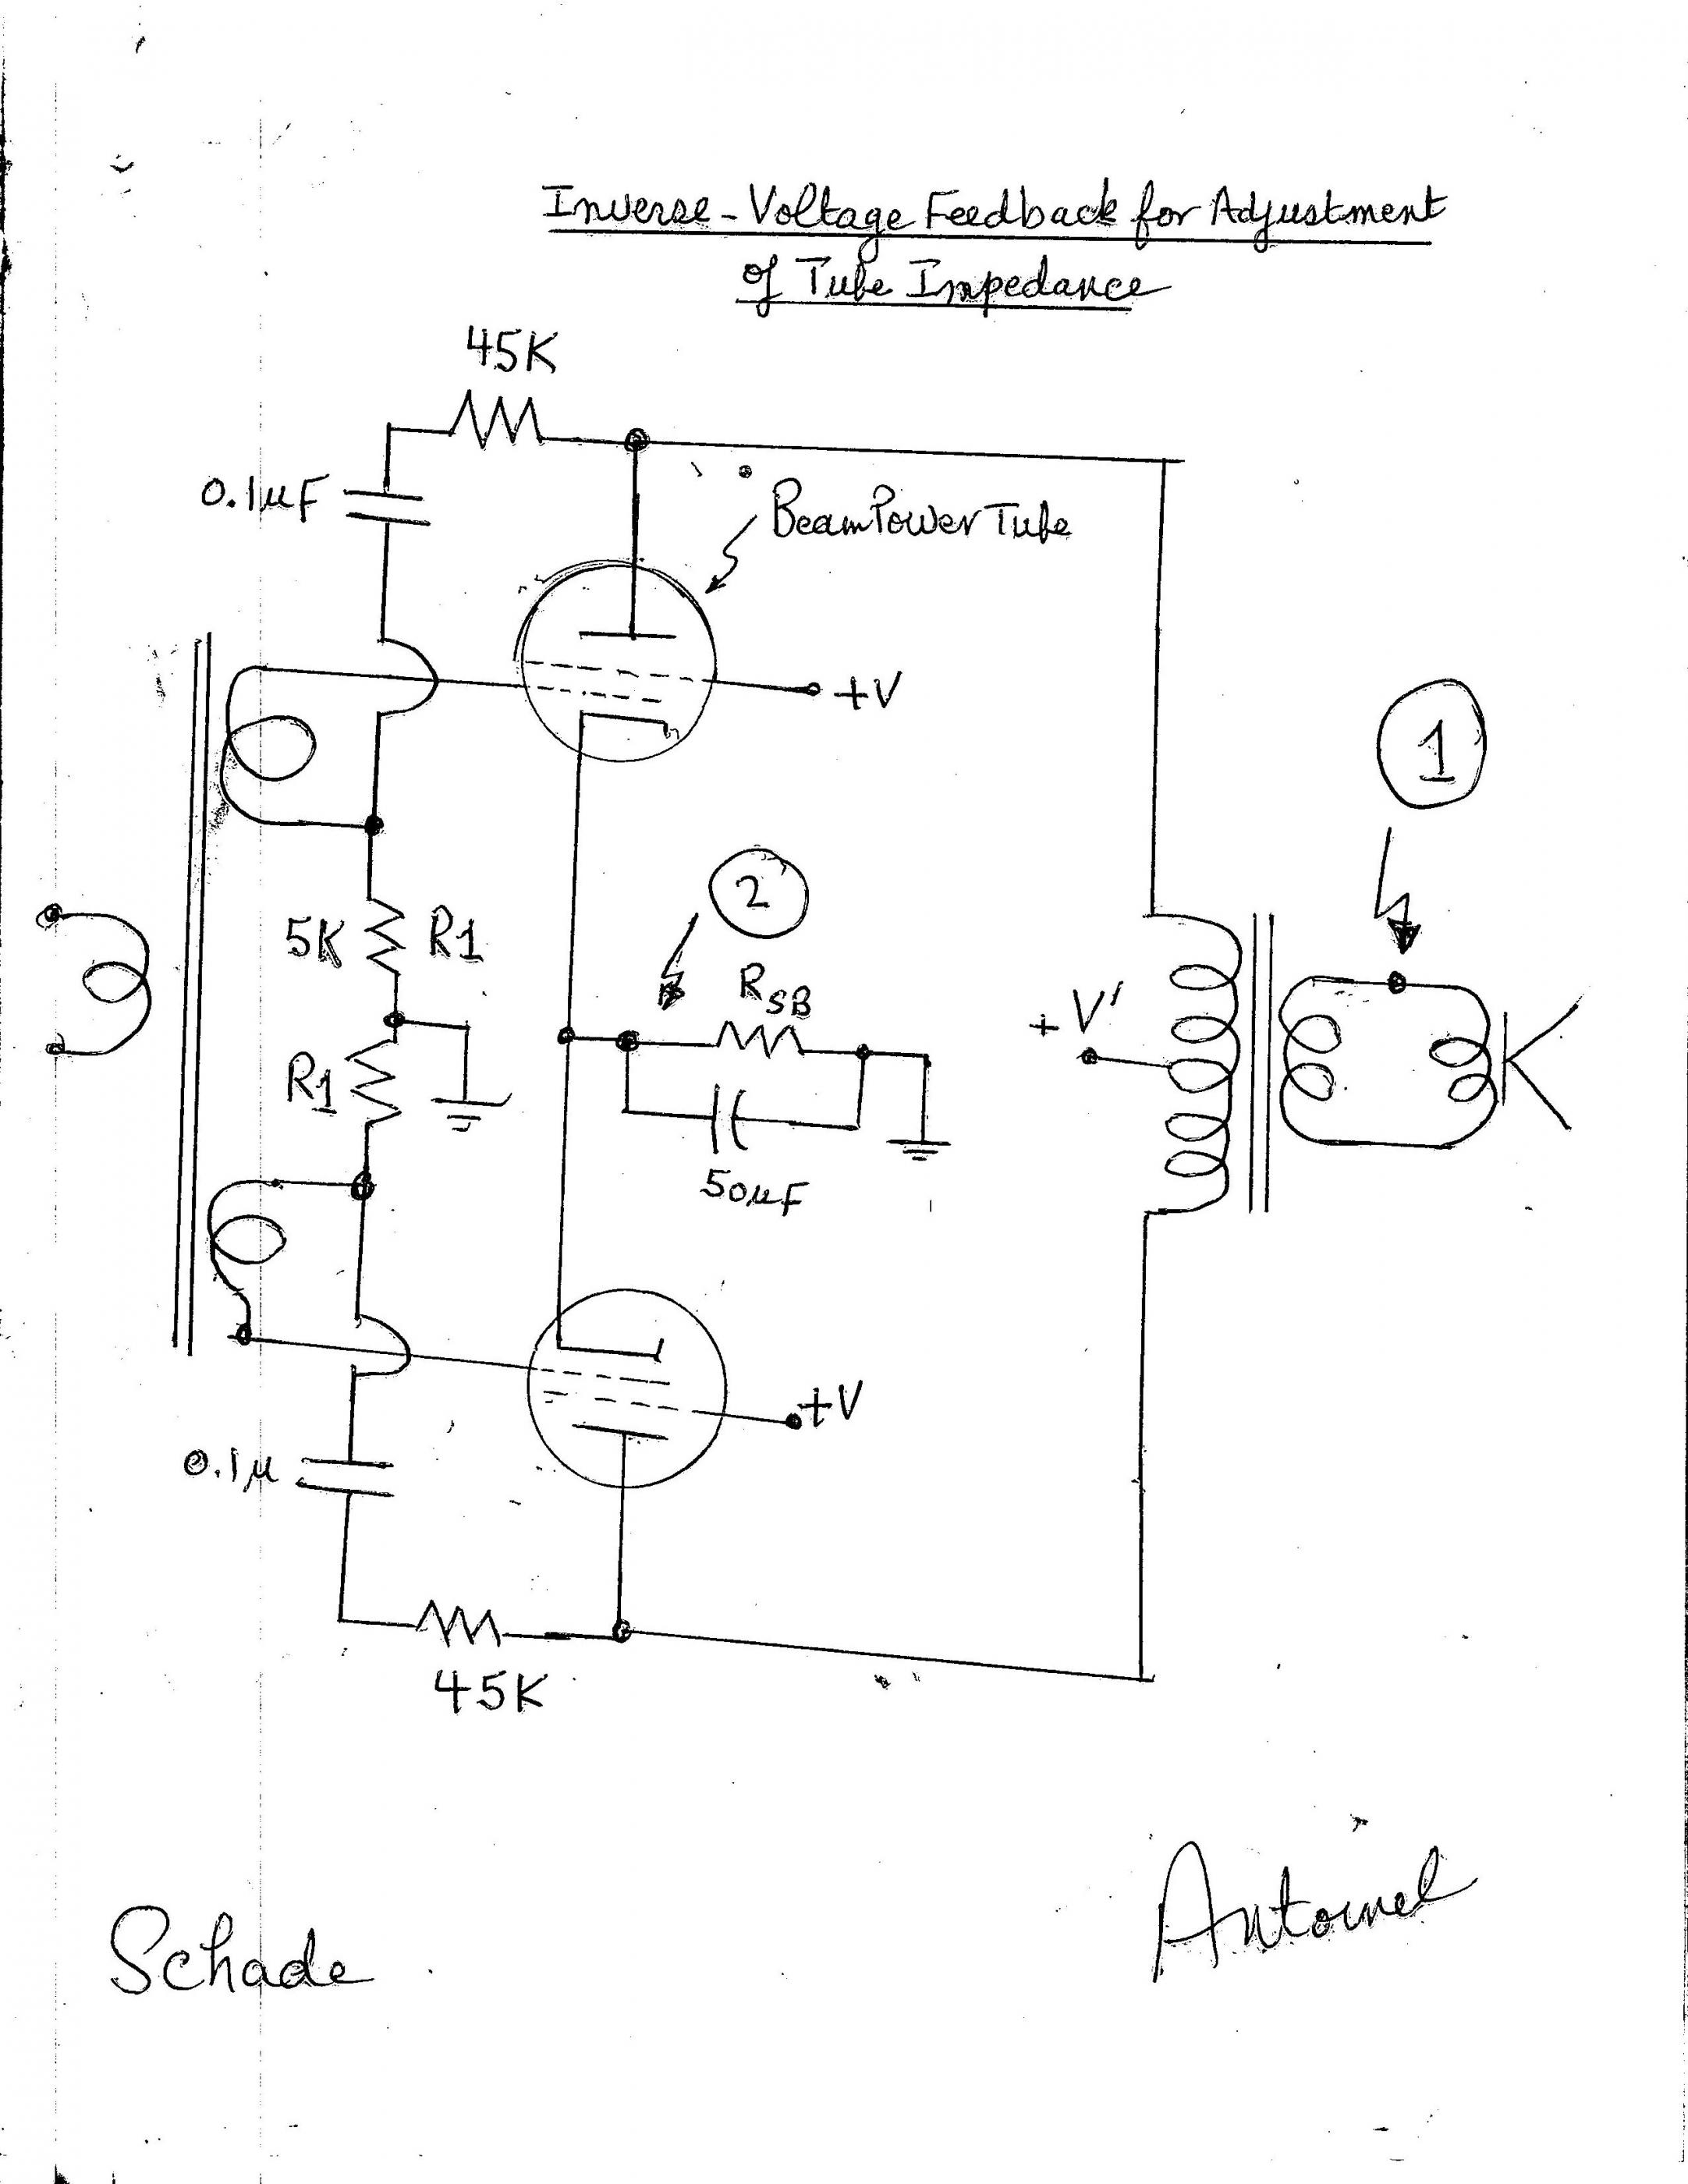 Inverse-Voltage Feedback for Adjustment
of Tube Impedance
45K
0.1µF
Beam Power Tube
+V
1
2
5K R1
RSB
+V'
R1
50µF
+V
0.1µ
45K
Schade
Antoinel